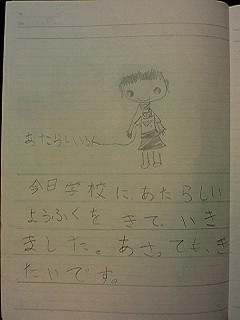 あたらしいふく
今日学校に、あたらしい
ようふくを きて、いき
ました。あさっても、き
たいです。